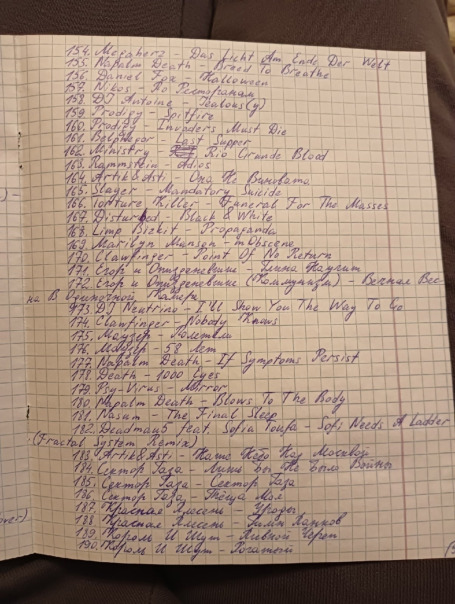 154. Megaherz - Das Licht Am Ende Der Welt
155. Napalm Death - Breed To Breathe
156. Daniel Fox - Halloween
157. Nikos - По Ресторанам
158. DJ Antoine - Jealous(y)
159. Prodigy - Spitfire
160. Prodigy - Invaders Must Die
161. Belphegor - Last Supper
162. Ministry - Rio Grande Blood
163. Rammstein - Adios
164. Artik&Asti - Она Не Виновата
165. Slayer - Mandatory Suicide
166. Torture Killer - Funeral For The Masses
167. Disturbed - Black & White
168. Limp Bizkit - Propaganda
169. Marilyn Manson - mObscene
170. Clawfinger - Point Of No Return
171. Егор и Опизденевшие -
172. Егор и Опизденевшие (Коммунизм) - Вечная Вес-
на В Одиночной Камере
173. DJ Neutrino - I'll Show You The Way To Go
174. Clawfinger - Nobody Knows
175. Маузер - Полетели
176. Маузер - 58 Лет
177. Napalm Death - If Symptoms Persist
178. Death - 1000 Eyes
179. Psy-Virus - Mirror
180. Napalm Death - Blows To The Body
181. Nasum - The Final Sleep
182. Deadmau5 feat. Sofia Toufa - Sofi Needs A Ladder
(Fractal System Remix)
183. Artik&Asti - Наше Небо Над Москвой
184. Сектор Газа - Лишь Бы Не Было Войны
185. Сектор Газа - Сектор Газа
186. Сектор Газа - Тёща Моя
187. Красная Плесень - Уроды
188. Красная Плесень - Гимн Панков
189. Король И Шут - Пивной Череп
190. Король И Шут - Рогатый